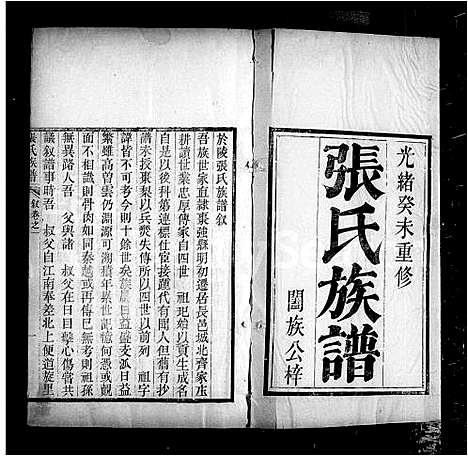 光緒癸未重修
張氏族譜
闔族公梓
於陵張氏族譜叙
吾族世家直隸棗強縣明初遷居長邑城北齊家庄
耕讀世業忠厚傳家自四世 祖玘始以貢生成名
自是以後科第連緜仕宦接踵代有聞人但舊有抄
譜未授棗梨以兵燹失傳所以四世以前列 祖字
諱皆不可考到今十餘世矣族屬日益盛支派日益
繁雖曾雲仍淵源可溯積年累世記憶何恐或覿
面不相識則骨肉如同秦越或再傳已無考則祖孫
無異路人吾 父與諸 叔父在日目擊心傷嘗共
議叙譜事時吾 叔父自江南奉差北上便道旋里
張氏族譜 叙卷之一 一